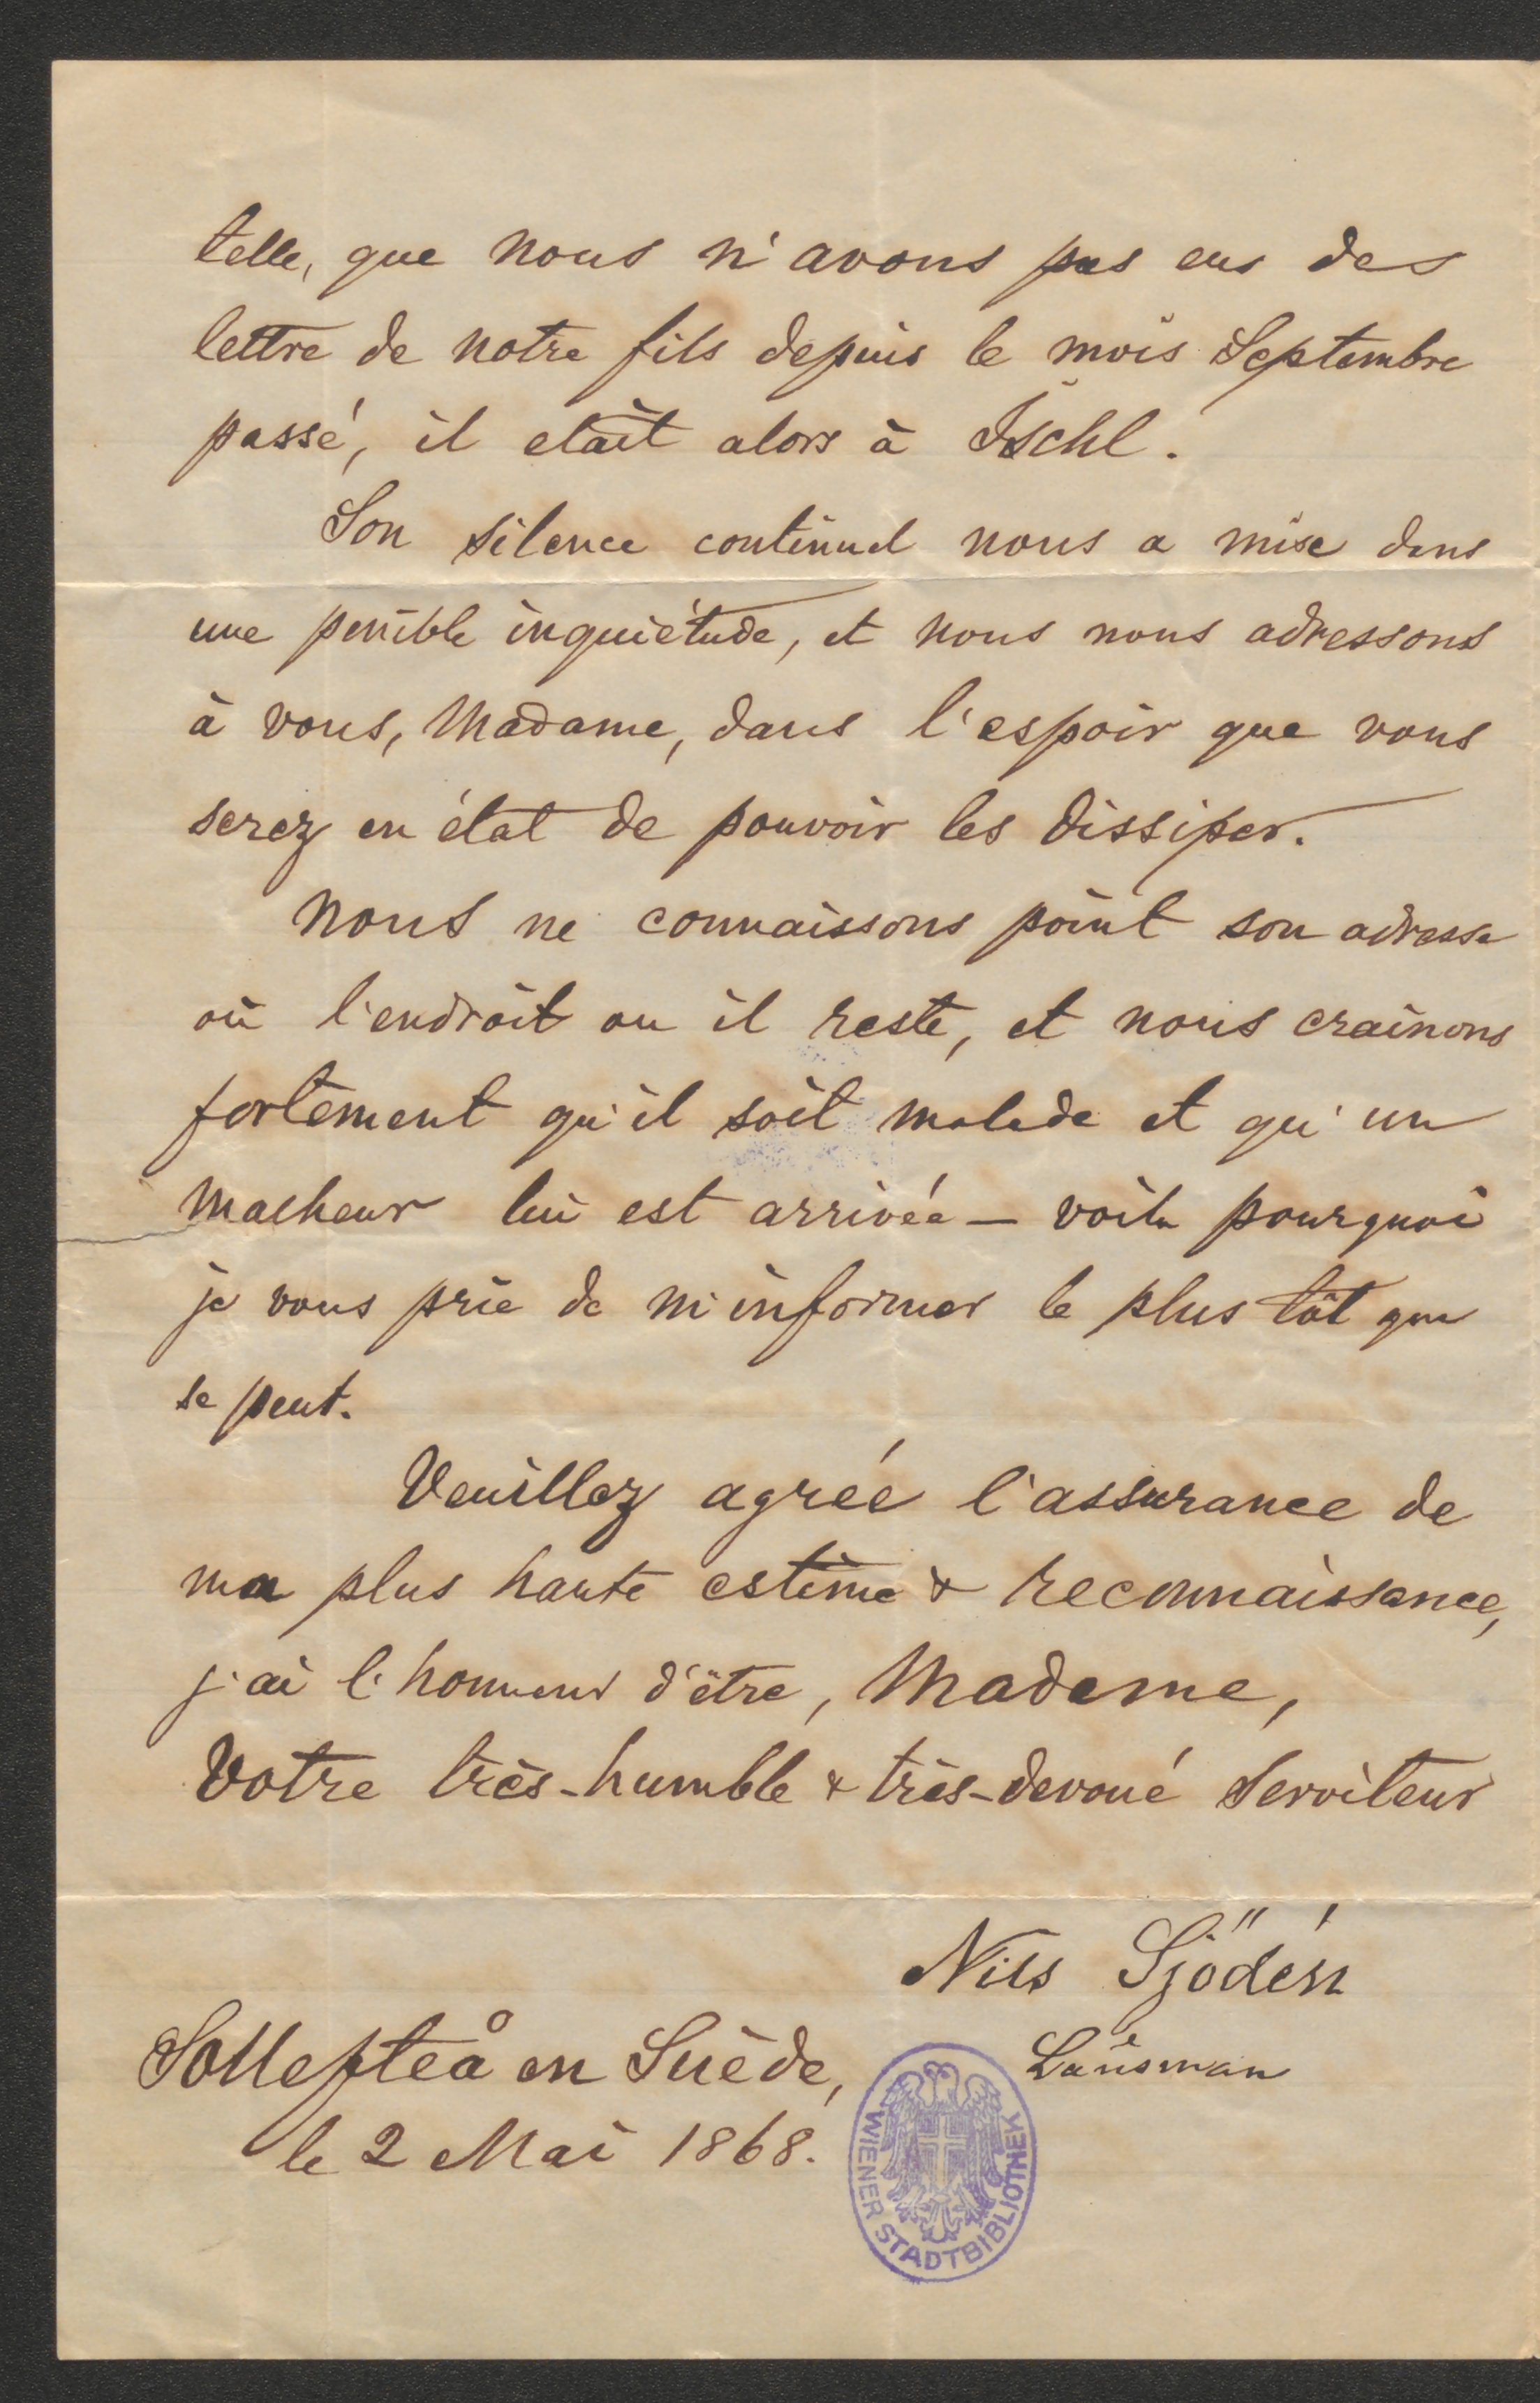 telle, que nous n'avons pas eus des
lettre de notre fils depuis le mois Septembre
passé, il etait alors à Ischl.
Son silence continuel nous a mise dans
une penible inquiétude, et nous nous adressons
à vous, Madame, dans l'espoir que vous
serez en état de pouvoir les dissiper.
Nous ne connaissons point son adresse
où l'endroit ou il reste, et nous crainons
fortement qu'il soit malade et qu'un
malheur lui est arrivée – voila pourquoi
je vous prie de m'informer le plus tôt que
se peut.
Veuillez agrée l'assurance de
ma plus haute estime & reconnaissance,
j'ai l'honneur d'être, Madame,
Votre très-humble & très-devoué Serviteur
Nils Sjödén
Länsman
Sollefteå en Suède,
le 2 Mai 1868.
WIENER STADTBIBLIOTHEK